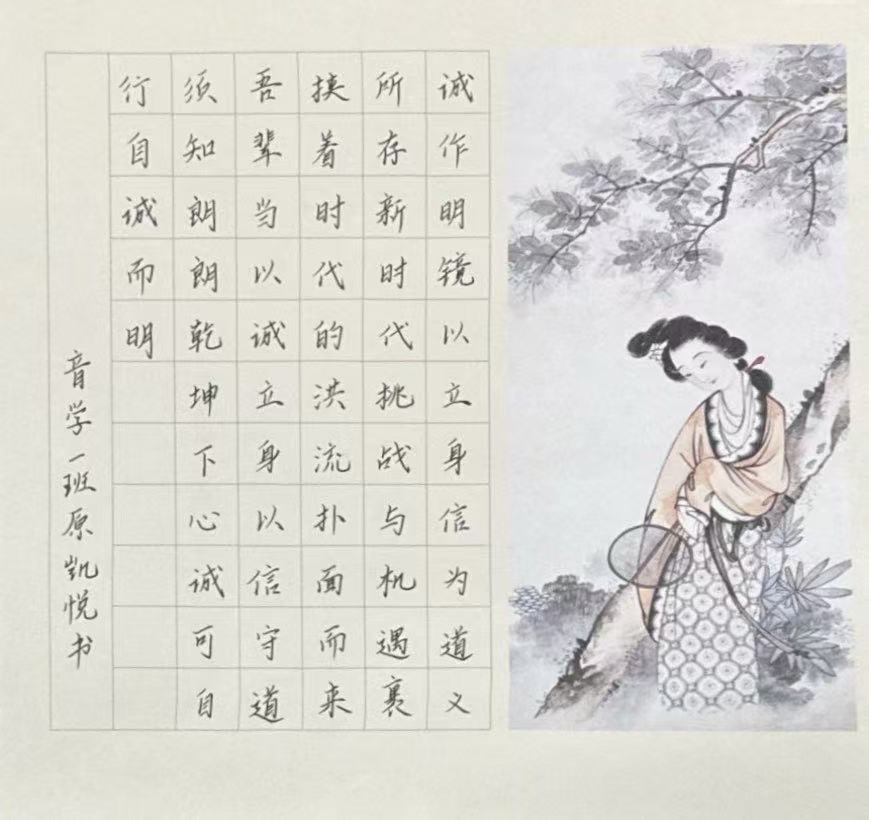 诚作明镜以立身信为道义
所存新时代挑战与机遇裹
挟着时代的洪流扑面而来
吾辈当以诚立身以信守道
须知朗朗乾坤下心诚可自
行自诚而明
音学一班原凯悦书